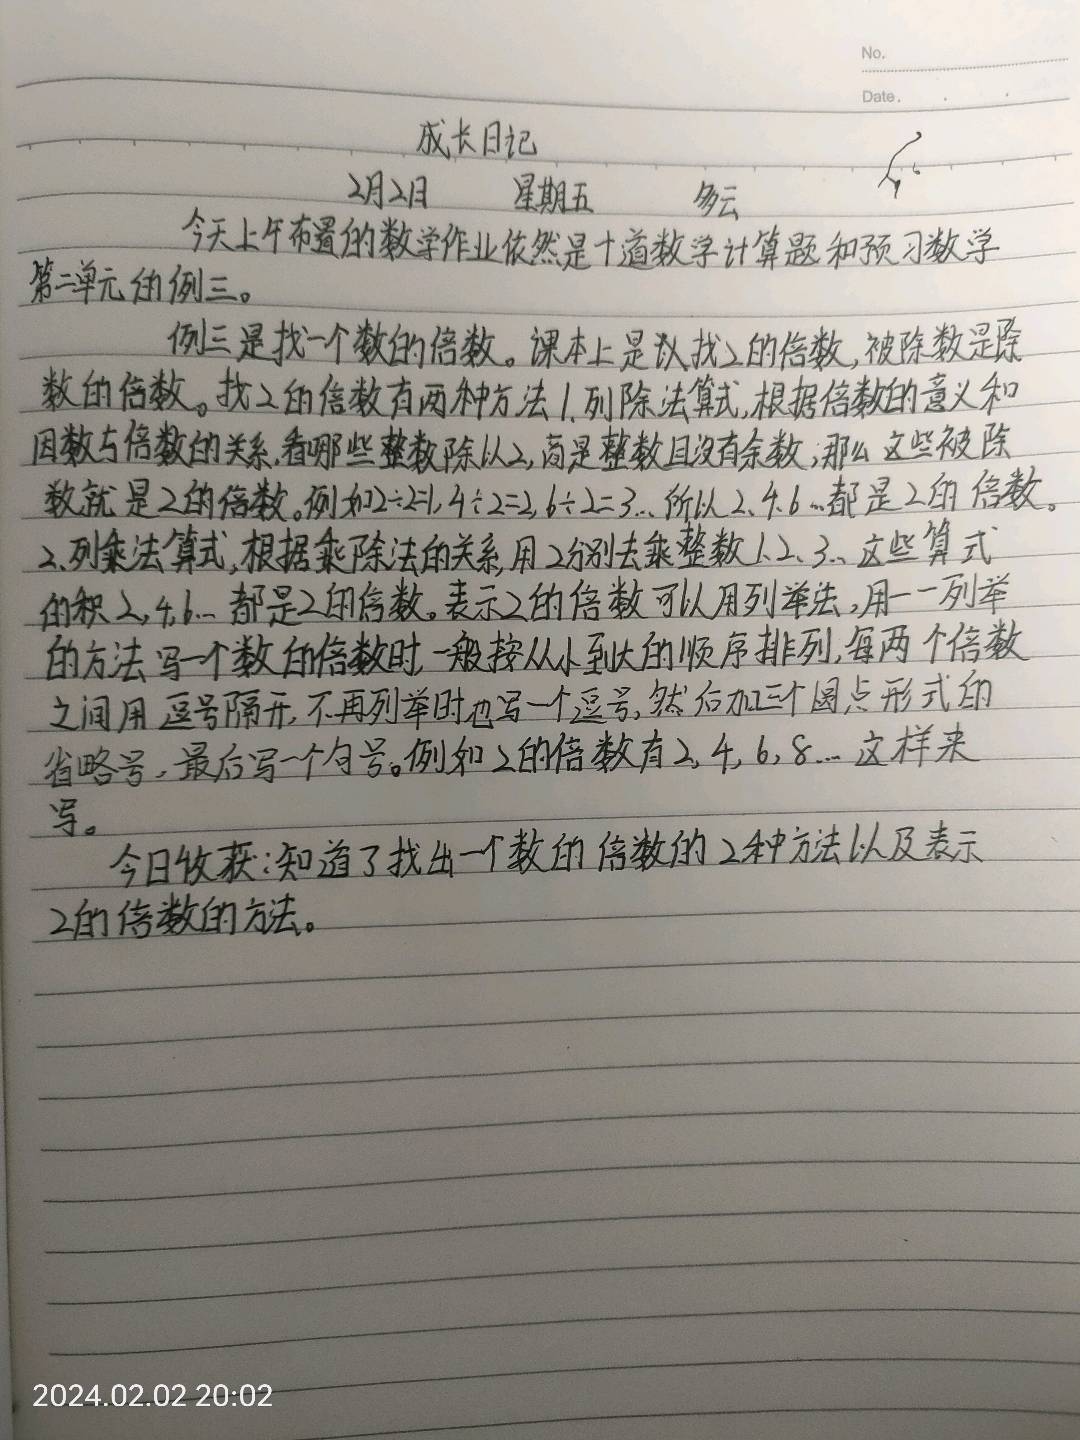 No.
Date.
成长日记
2月2日 星期五 多云
今天上午布置的数学作业依然是十道数学计算题和预习数学
第二单元的例三。
例三是找一个数的倍数。课本上是以找2的倍数,被除数是除
数的倍数。找2的倍数有两种方法1.列除法算式,根据倍数的意义和
因数与倍数的关系,看哪些整数除以2,商是整数且没有余数,那么这些被除
数就是2的倍数。例如2÷2=1,4÷2=2,6÷2=3...所以2、4、6...都是2的倍数。
2、列乘法算式,根据乘除法的关系,用2分别去乘整数1、2、3...这些算式
的积2,4,6...都是2的倍数。表示2的倍数可以用列举法,用一一列举
的方法写一个数的倍数时,一般按从小到大的顺序排列,每两个倍数
之间用逗号隔开,不再列举时也写一个逗号,然后加三个圆点形式的
省略号,最后写一个句号。例如2的倍数有2,4,6,8...这样来
写。
今日收获:知道了找出一个数的倍数的2种方法以及表示
2的倍数的方法。
2024.02.02 20:02